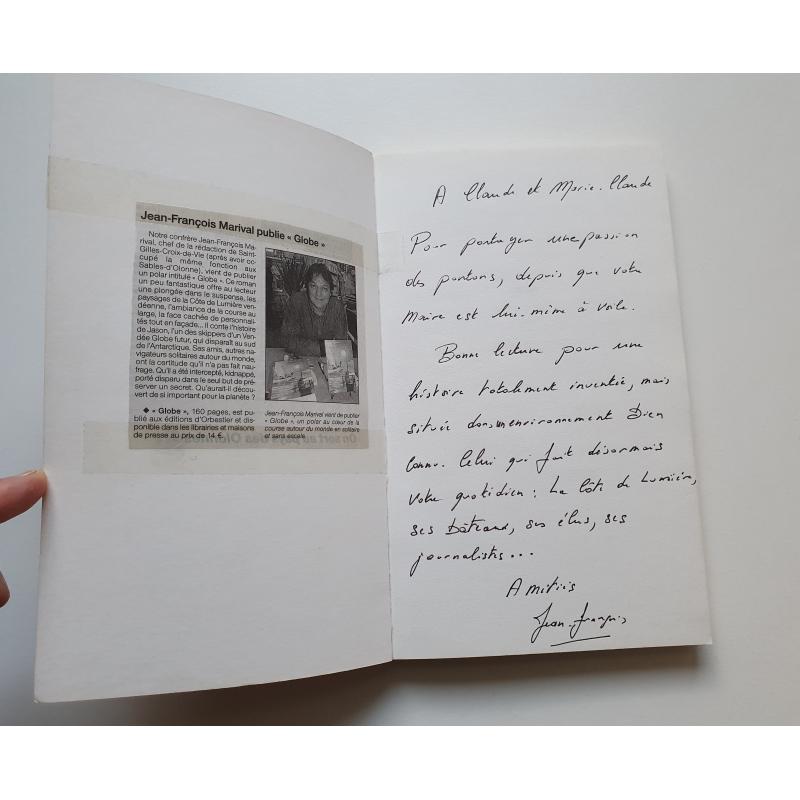 Jean-François Marival publie « Globe »
Notre confrère Jean-François Ma-
rival, chef de la rédaction de Saint-
Gilles-Croix-de-Vie (après avoir oc-
cupé la même fonction aux
Sables-d'Olonne), vient de publier
un polar intitulé « Globe ». Ce roman
un peu fantastique offre au lecteur
une plongée dans le suspense, les
paysages de la Côte de Lumière ven-
déenne, l'ambiance de la course au
large, la face cachée de personnali-
tés tout en façade... Il conte l'histoire
de Jason, l'un des skippers d'un Ven-
dée Globe futur, qui disparaît au sud
de l'Antarctique. Ses amis, autres na-
vigateurs solitaires autour du monde,
ont la certitude qu'il n'a pas fait nau-
frage. Qu'il a été intercepté, kidnappé,
porté disparu dans le seul but de pré-
server un secret. Qu'aurait-il décou-
vert de si important pour la planète ?
◆ « Globe », 160 pages, est pu-
blié aux éditions d'Orbestier et dis-
ponible dans les librairies et maisons
de presse au prix de 14 €.
Jean-François Marival vient de publier
« Globe », un polar au cœur de la
course autour du monde en solitaire
et sans escale
A Claude et Marie-Claude
Pour partager une passion
des pontons, depuis que votre
Maire est lui-même à voile.
Bonne lecture pour une
histoire totalement inventée, mais
située dans un environnement bien
connu. Celui qui fait désormais
votre quotidien : La Côte de Lumière,
ses bâteaux, ses élus, ses
journalistes...
Amitiés
Jean-François